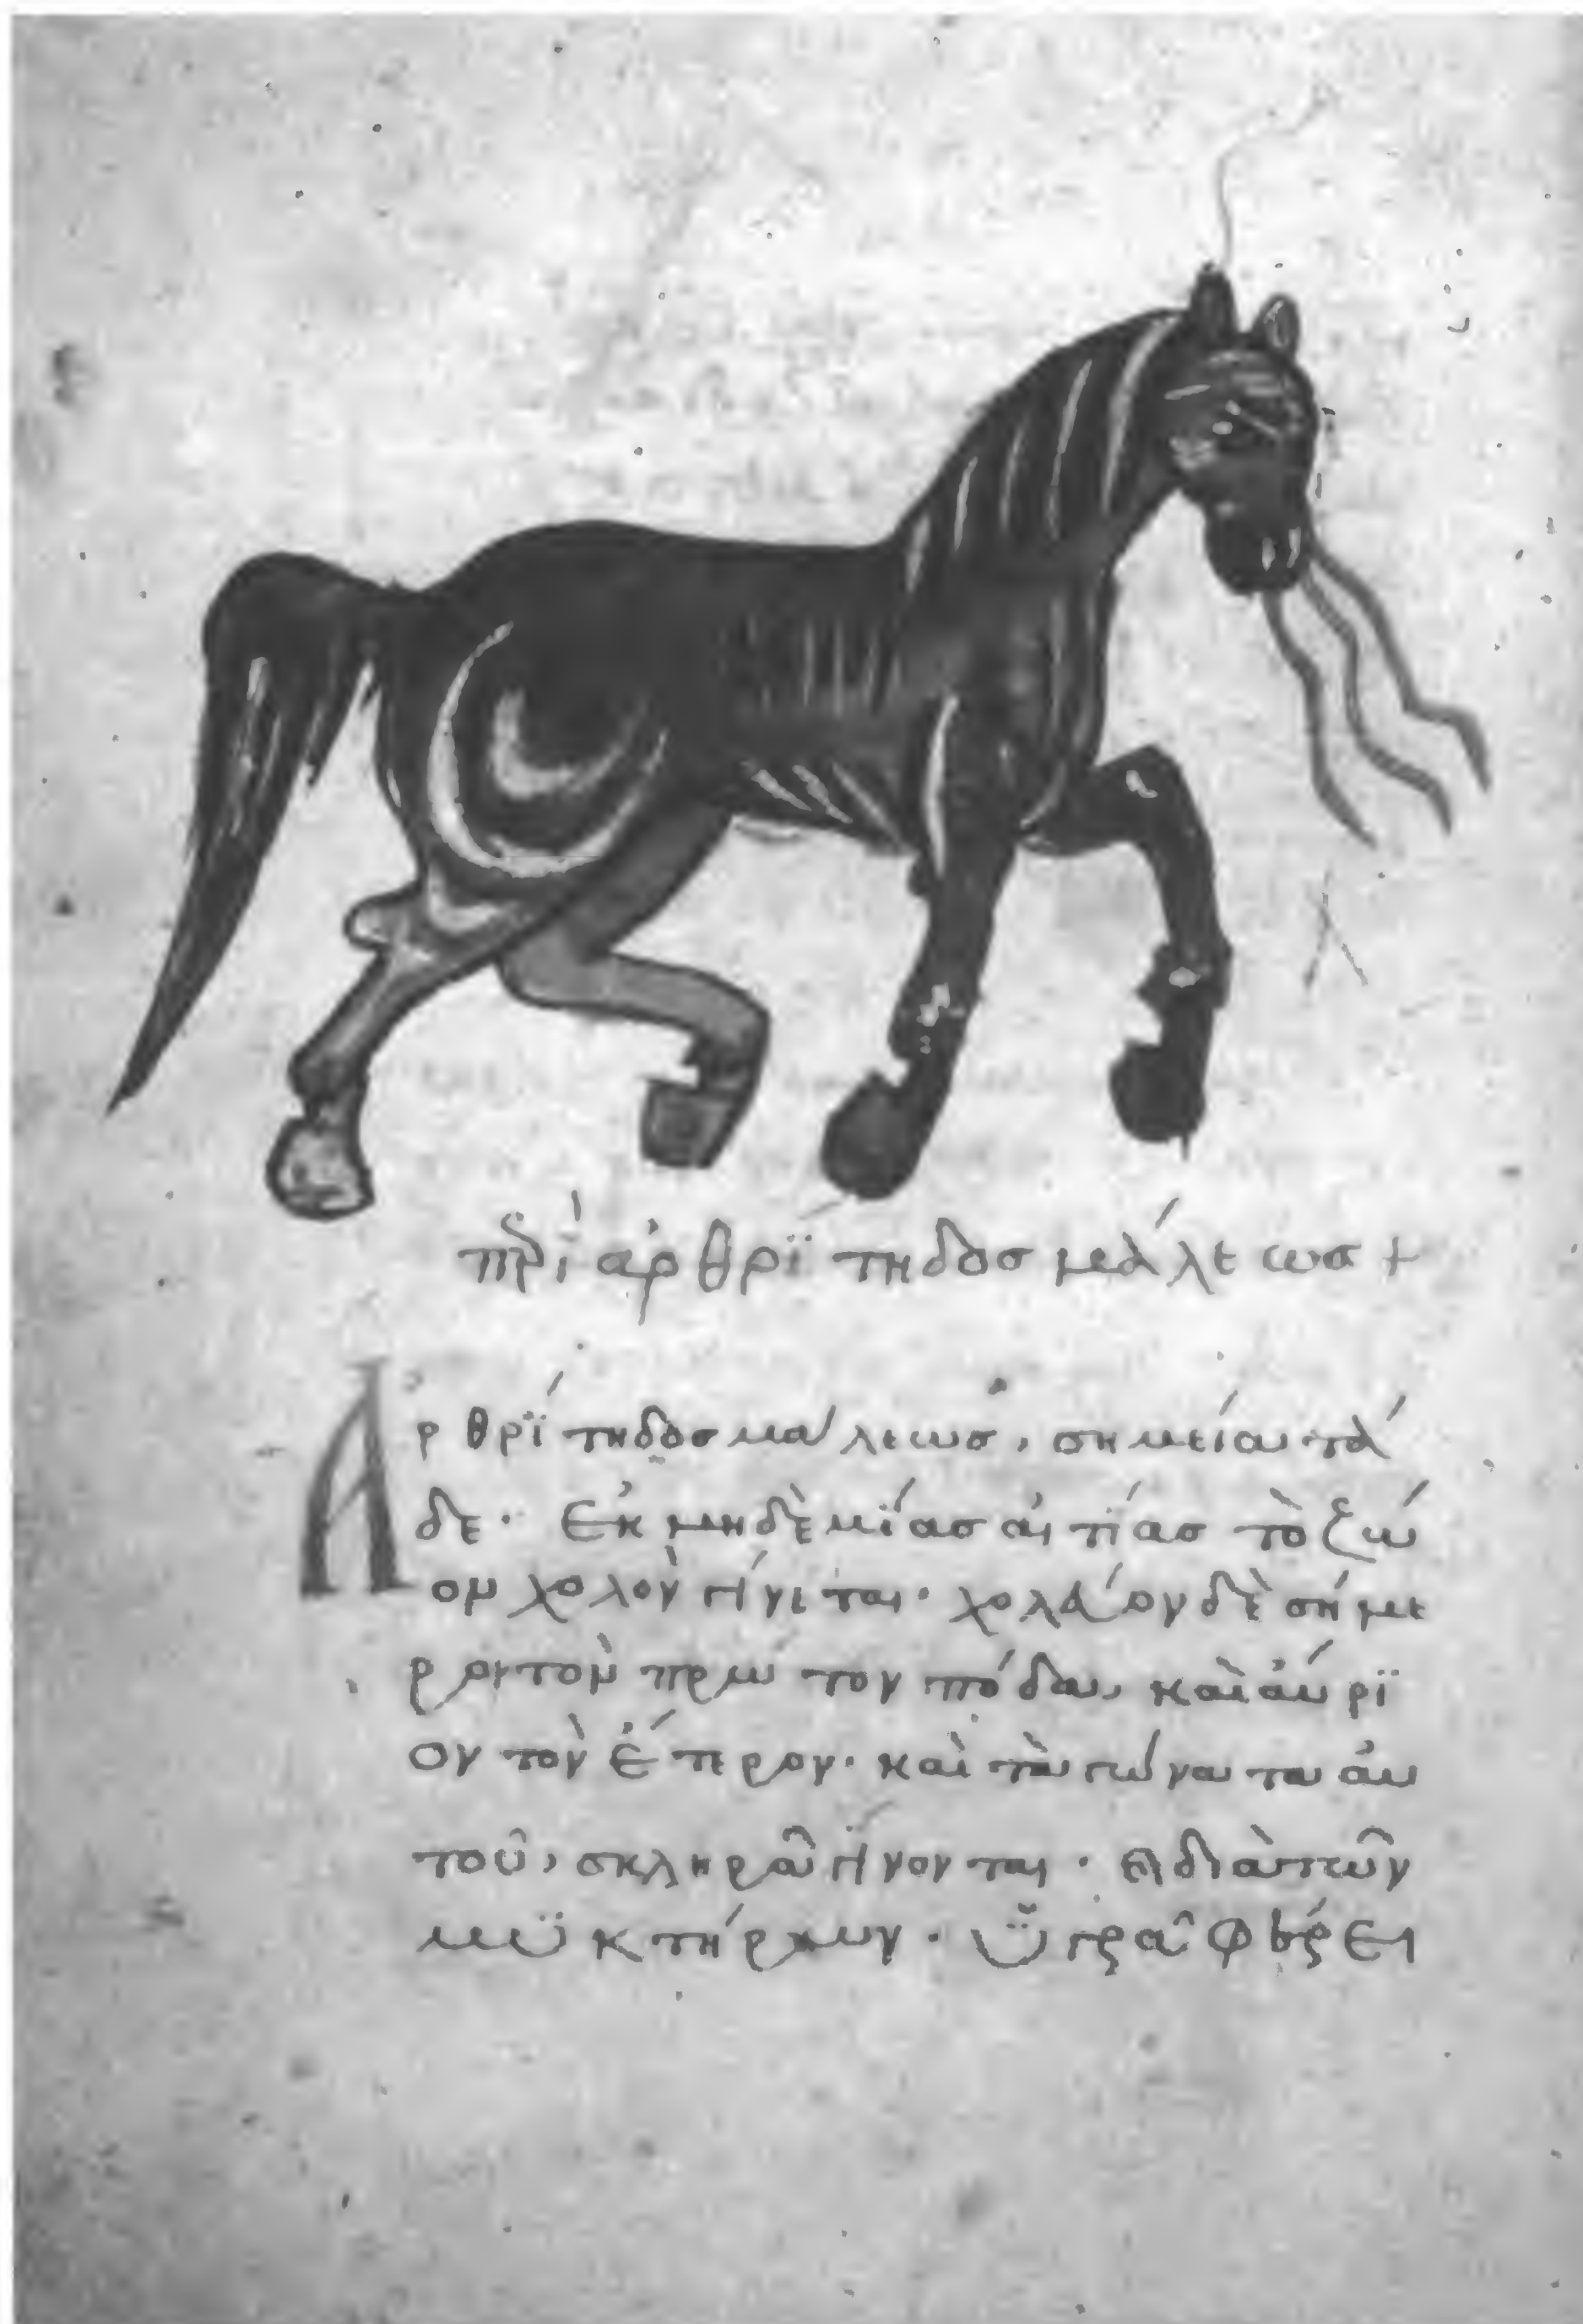 πρὶ ἀρθρϊτηδοσ μάλεωσ +
Ἀρθρΐτηδοσ μάλεωσ, σημεῖα τά
δε· ἐκ μηδὲ μΐασ αἰτίασ τὸ ζώ
ον χολὸν γίνεται· χολαίον δὲ σήμε
ρον τὸν πρώτον πόδα, καὶ ἀύρϊ
ον τὸν ἕτερον· καὶ τὰ γώνατα ἀυ
τοῦ, σκληρᾶ γίνονται· διὰ τῶν
μϋκτήρων· ϋγρᾶ φέρει